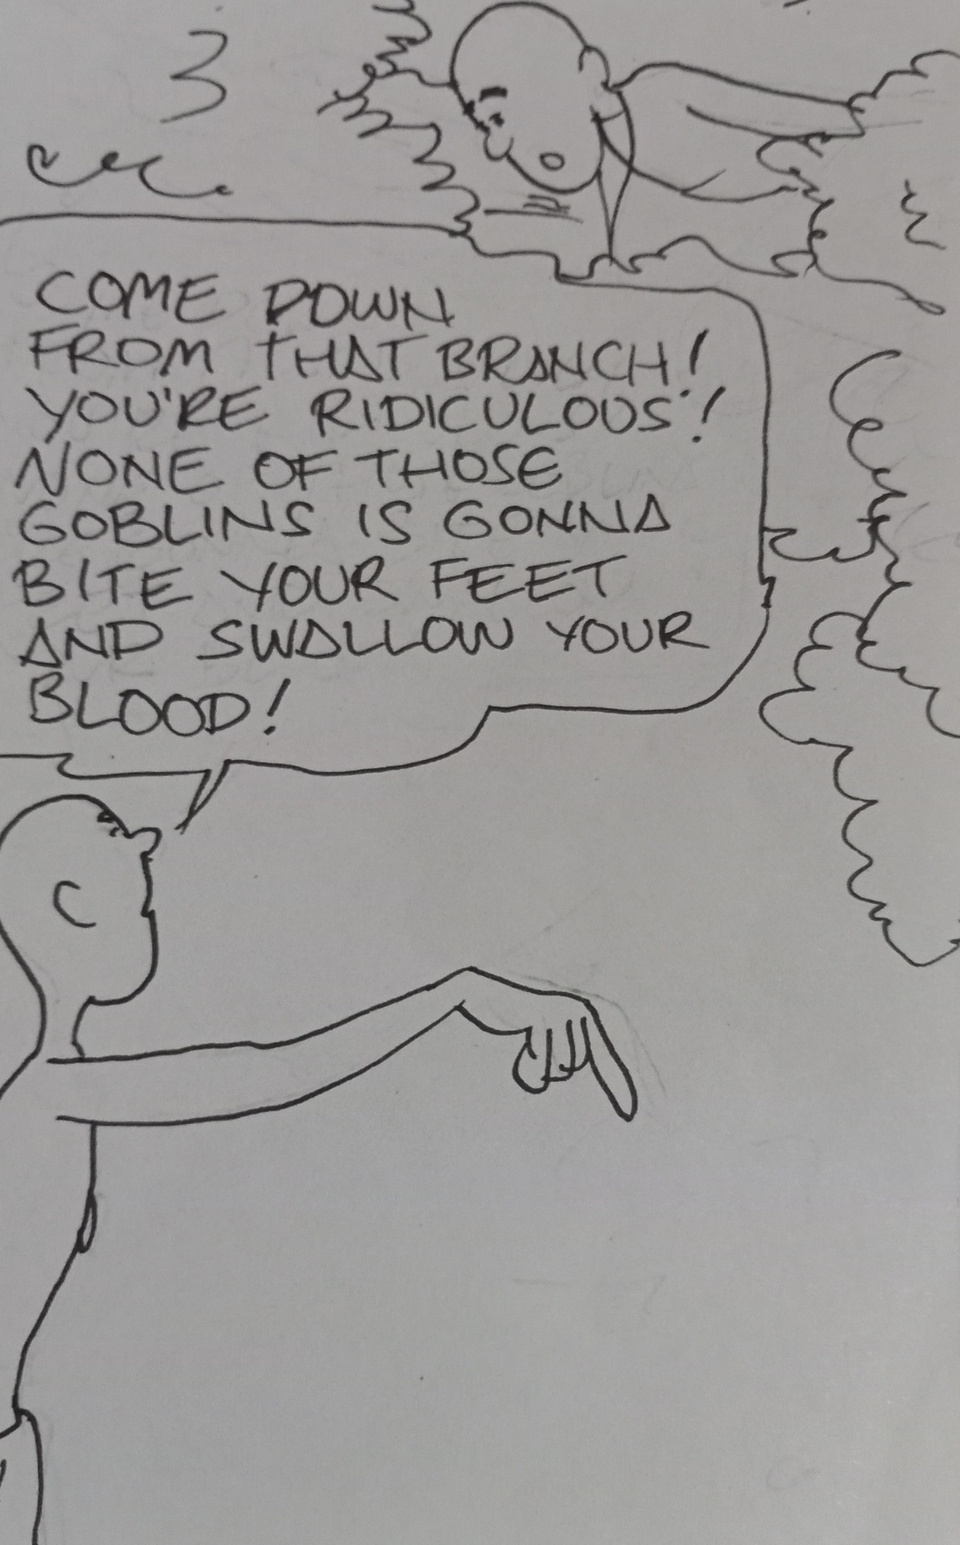 COME DOWN
FROM THAT BRANCH!
YOU'RE RIDICULOUS!
NONE OF THOSE
GOBLINS IS GONNA
BITE YOUR FEET
AND SWALLOW YOUR
BLOOD!